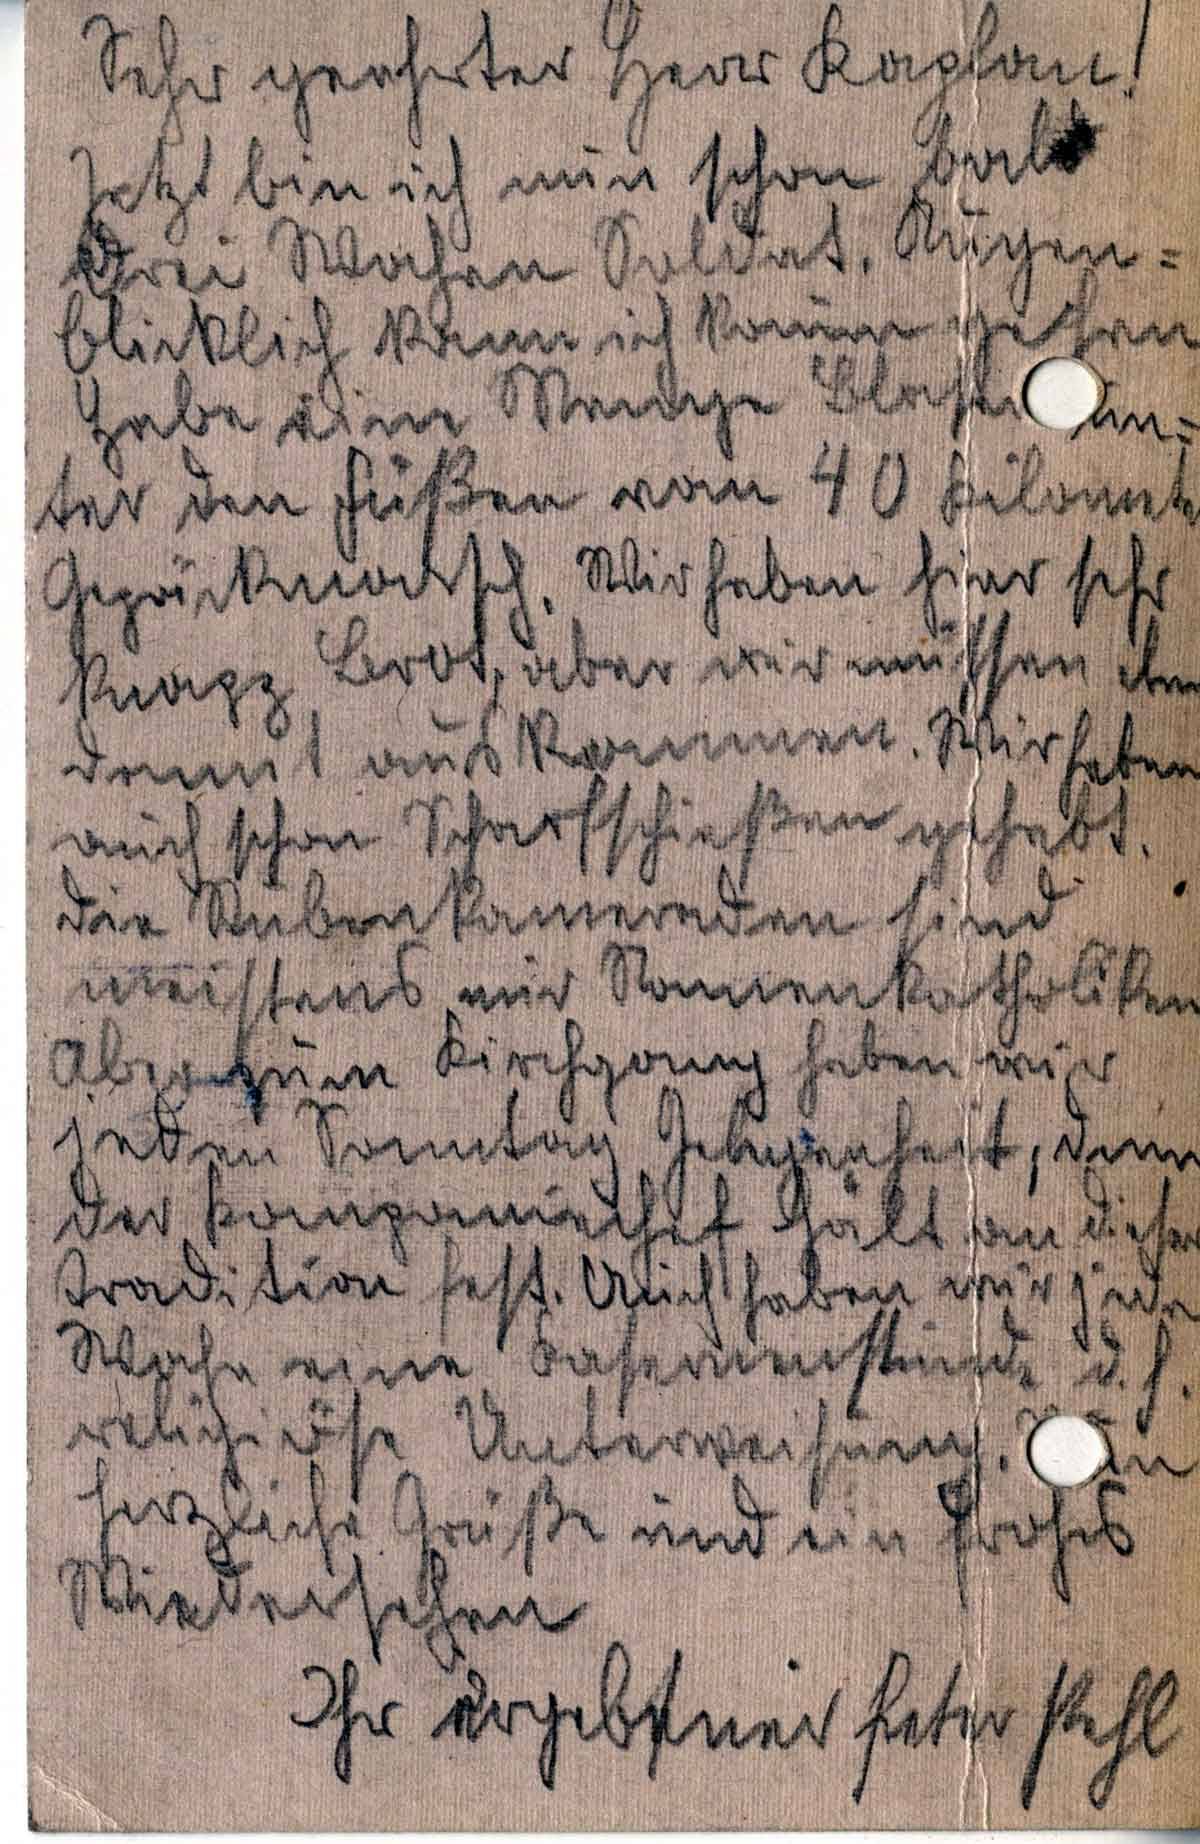 Sehr geehrter Herr Kaplan!
Jetzt bin ich nun schon bald
drei Wochen Soldat. Augen=
blicklich kann ich kaum gehen
habe eine Menge Blasen un=
ter den Füßen vom 40 Kilomete
Gepäckmarsch. Wir haben hier sehr
knapp Brot, aber wir müssen eben
damit auskommen. Wir haben
auch schon Scharfschießen gehabt.
Die Stubenkameraden sind
meistens nur Namenkatholiken
Aber zum Kirchgang haben wir
jeden Sonntag Gelegenheit, denn
der Kompaniechef hält an dieser
Tradition fest. Auch haben wir jede
Woche eine Kasernenstunde d.h.
religiöse Unterweisung. Nun
herzliche Grüße und ein frohes
Wiedersehen
Ihr ergebener Peter